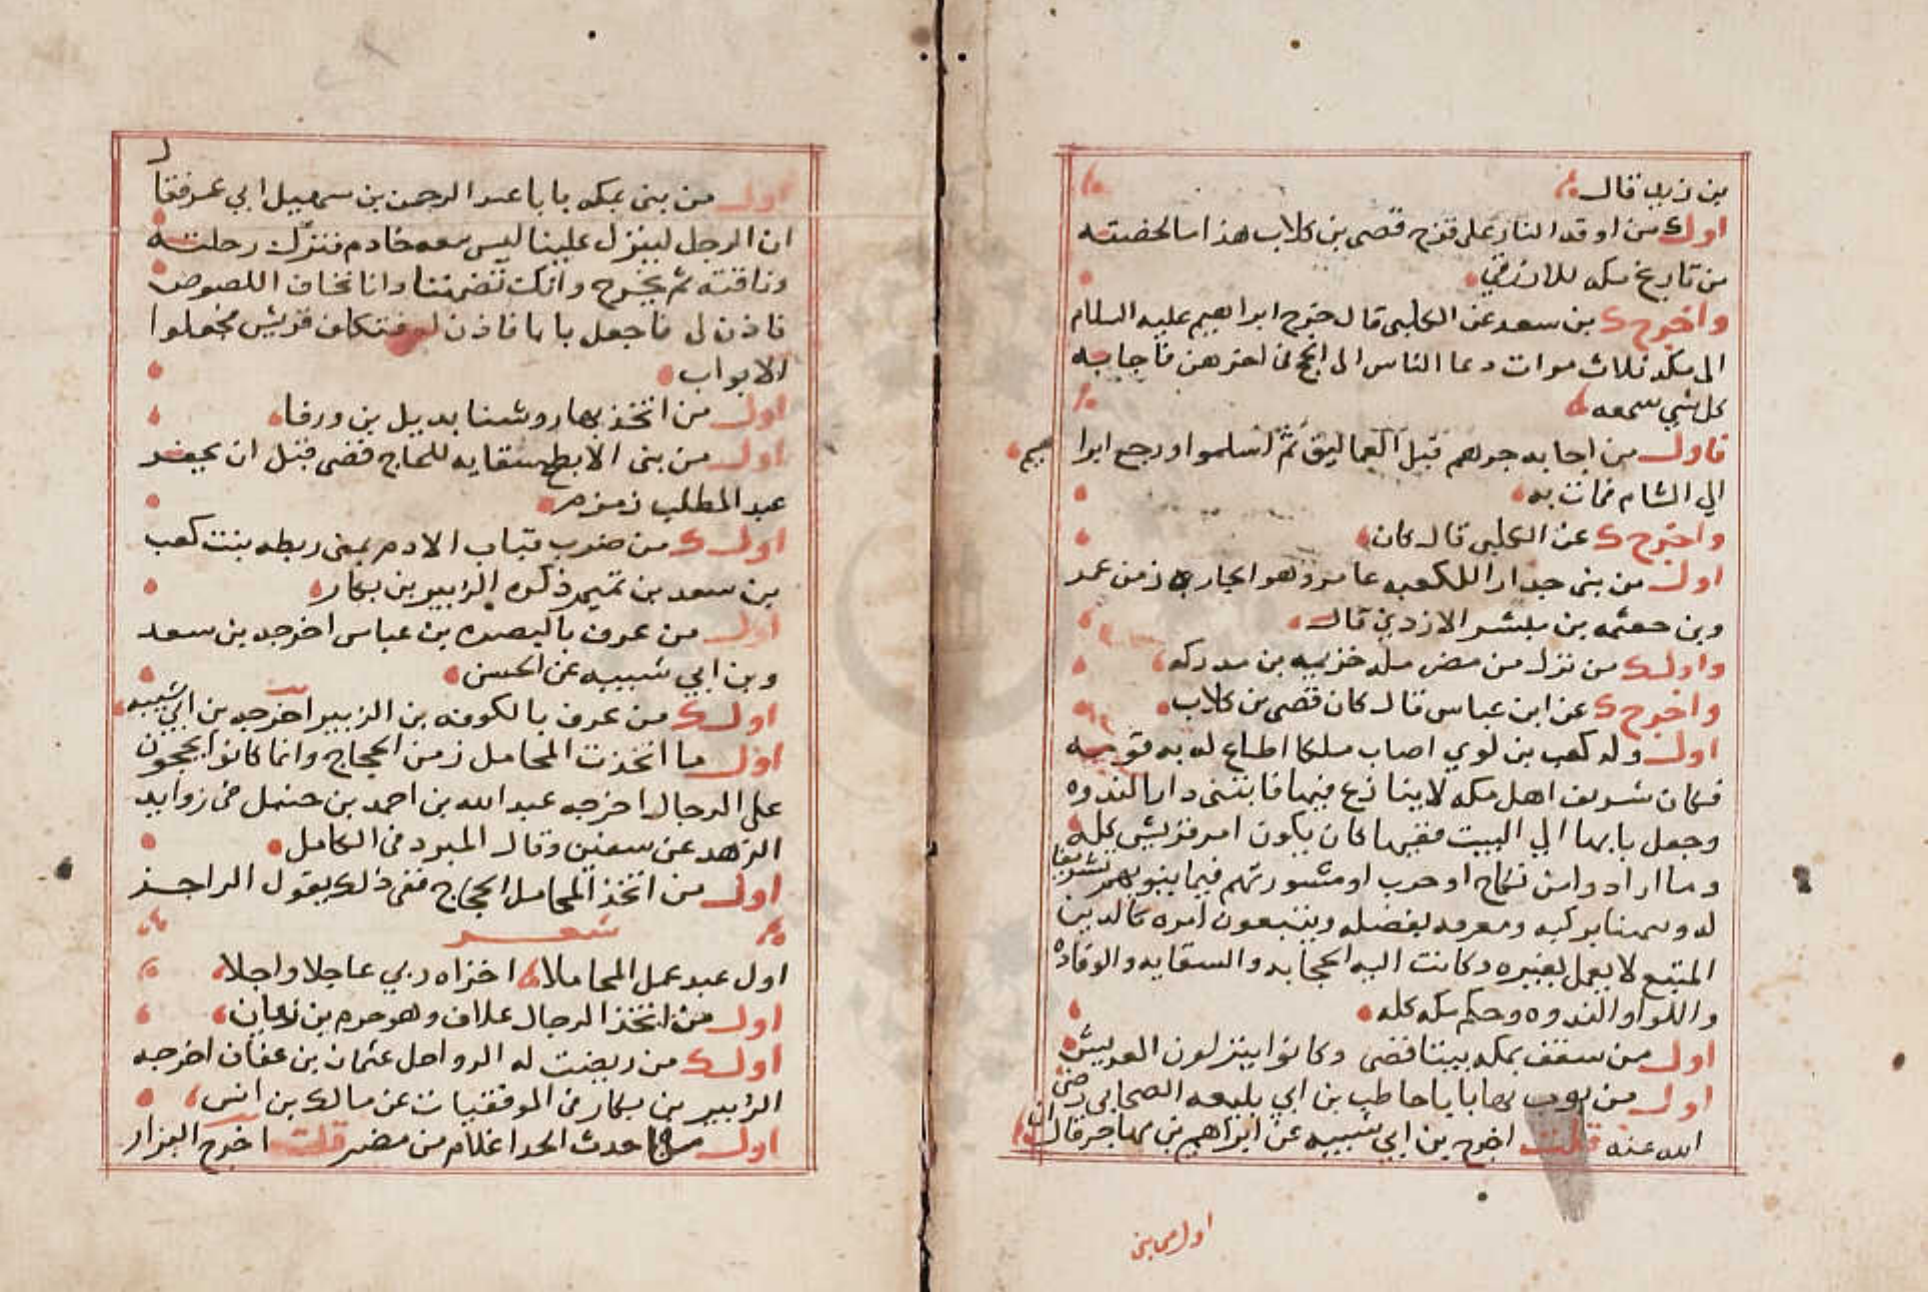 بن زيد قال
اول من اوقد النار على قزح قصي بن كلاب هذا ما لخصته
من تاريخ مكه للازرقي
واخرج ك بن سعد عن الكلبي قال خرج ابراهيم عليه السلام
الى مكه ثلاث مرات دعا الناس الى الحج في اخرهن فاجابه
كل شي سمعه
فاول من اجابه جرهم قبل العماليق ثم اسلموا ورجع ابراهيم
الي الشام فمات به
واخرج ك عن الكلبي قال كان
اول من بنى جدارا للكعبه عامر وهو الجارى زمن عمر
وبن جعثمه بن مبشر الازدي قال
واول ك من نزل من مضر مكه خزيمه بن مدركه
واخرج ك عن ابن عباس قال كان قصي بن كلاب
اول ولد كعب بن لوي اصاب ملكا اطاع له به قومه
فكان شريف اهل مكه لا ينازع فيها فابتنى دار الندوه
وجعل بابها الي البيت ففيها كان يكون امر قريش كله
وما ارادوا من نكاح او حرب او مشورتهم فيما ينوبهم تشريفا
له وتيمنا بركبه ومعرفه بفضله ويتبعون امره كالدين
المتبع لا يعمل بغيره وكانت اليه الحجابه والسقايه والوفاده
واللواو الندوه وحكم مكه كله
اول من سقف بمكه بيتا قصى وكانوا ينزلون العريش
اول من بوب بها بابا حاطب بن ابي بلتعه الصحابي رضى
الله عنه قلت اخرج بن ابي شيبه عن ابراهيم بن مهاجر قال ان
اول من بنى
اول من بنى بمكه بابا عبد الرحمن بن سهيل ابي عمر فقال
ان الرجل لينزل علينا ليس معه خادم فتنزك رحلته
وناقته ثم يخرج وانك تضمننا وانا نخاف اللصوص
فاذن لى فاجعل بابا فاذن له فتكلف قريش فجعلوا
الابواب
اول من اتخذ بها روشنا بديل بن ورقا
اول من بنى الابطح سقايه للحاج قصى قبل ان يحفر
عبد المطلب زمزم
اول ك من ضرب قباب الادم بمنى ريطه بنت كعب
بن سعد بن تميم ذكره الزبير بن بكار
اول من عرف بالبصره بن عباس اخرجه بن سعد
وبن ابي شيبه عن الحسن
اول ك من عرف بالكوفه بن الزبير اخرجه بن ابي شيبه
اول ما اتخذت المحامل زمن الحجاج وانما كانوا يحجون
على الرحال اخرجه عبد الله بن احمد بن حنبل في زوايد
الزهد عن سفين وقال المبرد في الكامل
اول من اتخذ المحامل الحجاج ففى ذلك يقول الراجز
شعر
اول عبد عمل المحاملا اخزاه ربي عاجلا واجلا
اول من اتخذ الرحال علاف وهو حرم بن زبان
اول ك من ربضت له الرواحل عثمان بن عفان اخرجه
الزبير بن بكار في الموفقيات عن مالك بن انس
اول ما حدث الحدا غلام من مضر قلت اخرج البزار